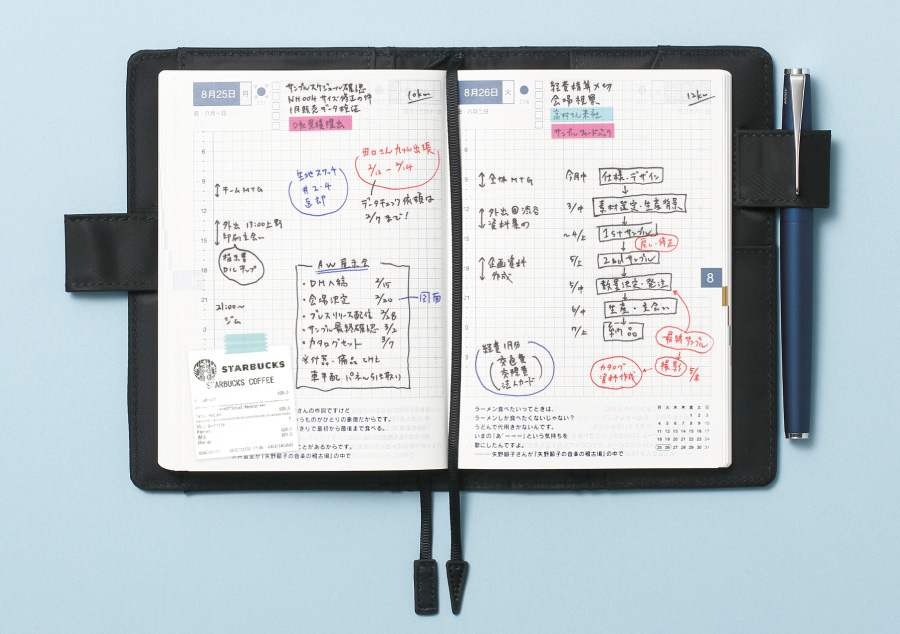 8月25日 月
八月一日
サンプルスケジュール確認
NH004 サイズ修正の件
1月販売データ検証
10km
6
9
12
15
18
21
0
チームMTG
外出 17:00上野
印刷立会い
指示書
DICチップ
21:00~
ジム
生地スワッチ
#2.4
返却
田口さん 出張
2/12 - 2/14
データチェック依頼は
2/7まで!
AW展示会
・DM入稿 2/15
・会場決定 2/20
図面
・プレスリリース配信 2/28
・サンプル最終確認 3/2
・カタログセット 3/7
※什器・備品
車手配 パネル
STARBUCKS
STARBUCKS COFFEE
さんの作詞ですけど
いうものがひとりの象徴だからです。
きりで最初から最後まで食べる。
ことがあるからです。
矢野顕子さんが『矢野顕子の音楽の稽古場』の中で
8月26日 火
八月二日
経費精算〆切
会場視察
高村さん来社
サンプルフィードバック
12km
全体MTG
外出@渋谷
資料集め
企画資料
作成
今月中 仕様・デザイン
3/中 素材選定・生産背景
~4/上 1stサンプル
戻し・修正
5/上 2ndサンプル
5/中 数量決定・発注
6/中 生産・立会い
7/上 納品
最終サンプル
撮影 5/末
カタログ
資料作成
経費 1月分
交通費
交際費
法人カード
8
ラーメン食べたいってときは、
ラーメンしか食べたくないじゃない?
うどんで代用きかないんです。
いまの「あ゛ーーー」という気持ちを
歌にしたんですよ。
——矢野顕子さんが『矢野顕子の音楽の稽古場』の中で
月 火 水 木 金 土 日
1 2 3
4 5 6 7 8 9 10
11 12 13 14 15 16 17
18 19 20 21 22 23 24
25 26 27 28 29 30 31